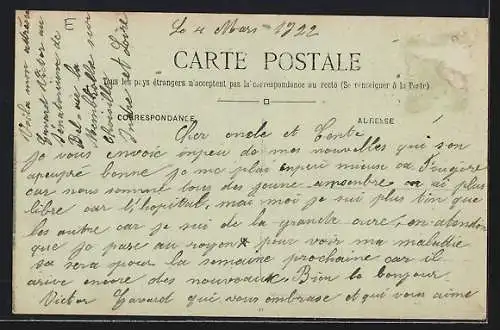 Le 4 Mars 1922
CARTE POSTALE
Tous les pays étrangers n'acceptent pas la correspondance au recto (Se renseigner à la Poste)
CORRESPONDANCE
ADRESSE
Cher oncle et Tente
je vous envoie inpeu de mes nouvelles qui son
apeupré bonne je me plai inpeu mieux
car nous somme tous des jeune ansenbre on ai plus
libre car l'hopital, mai moi je sui plus loin que
les autre car je sui de la grande cure, en atandan
que je pase au rayon x pour voir ma maladie
sa sera pour la semaine prochaine car il
arive encore des nouveaux. Bien le bonjour
Victor Gavard qui vous enbrase et qui vous aime
Voila mon adrese
Gavard Victor au
Senatorium de
Bel-air la
Menbrolle sur
Choisille
Indre et Loire